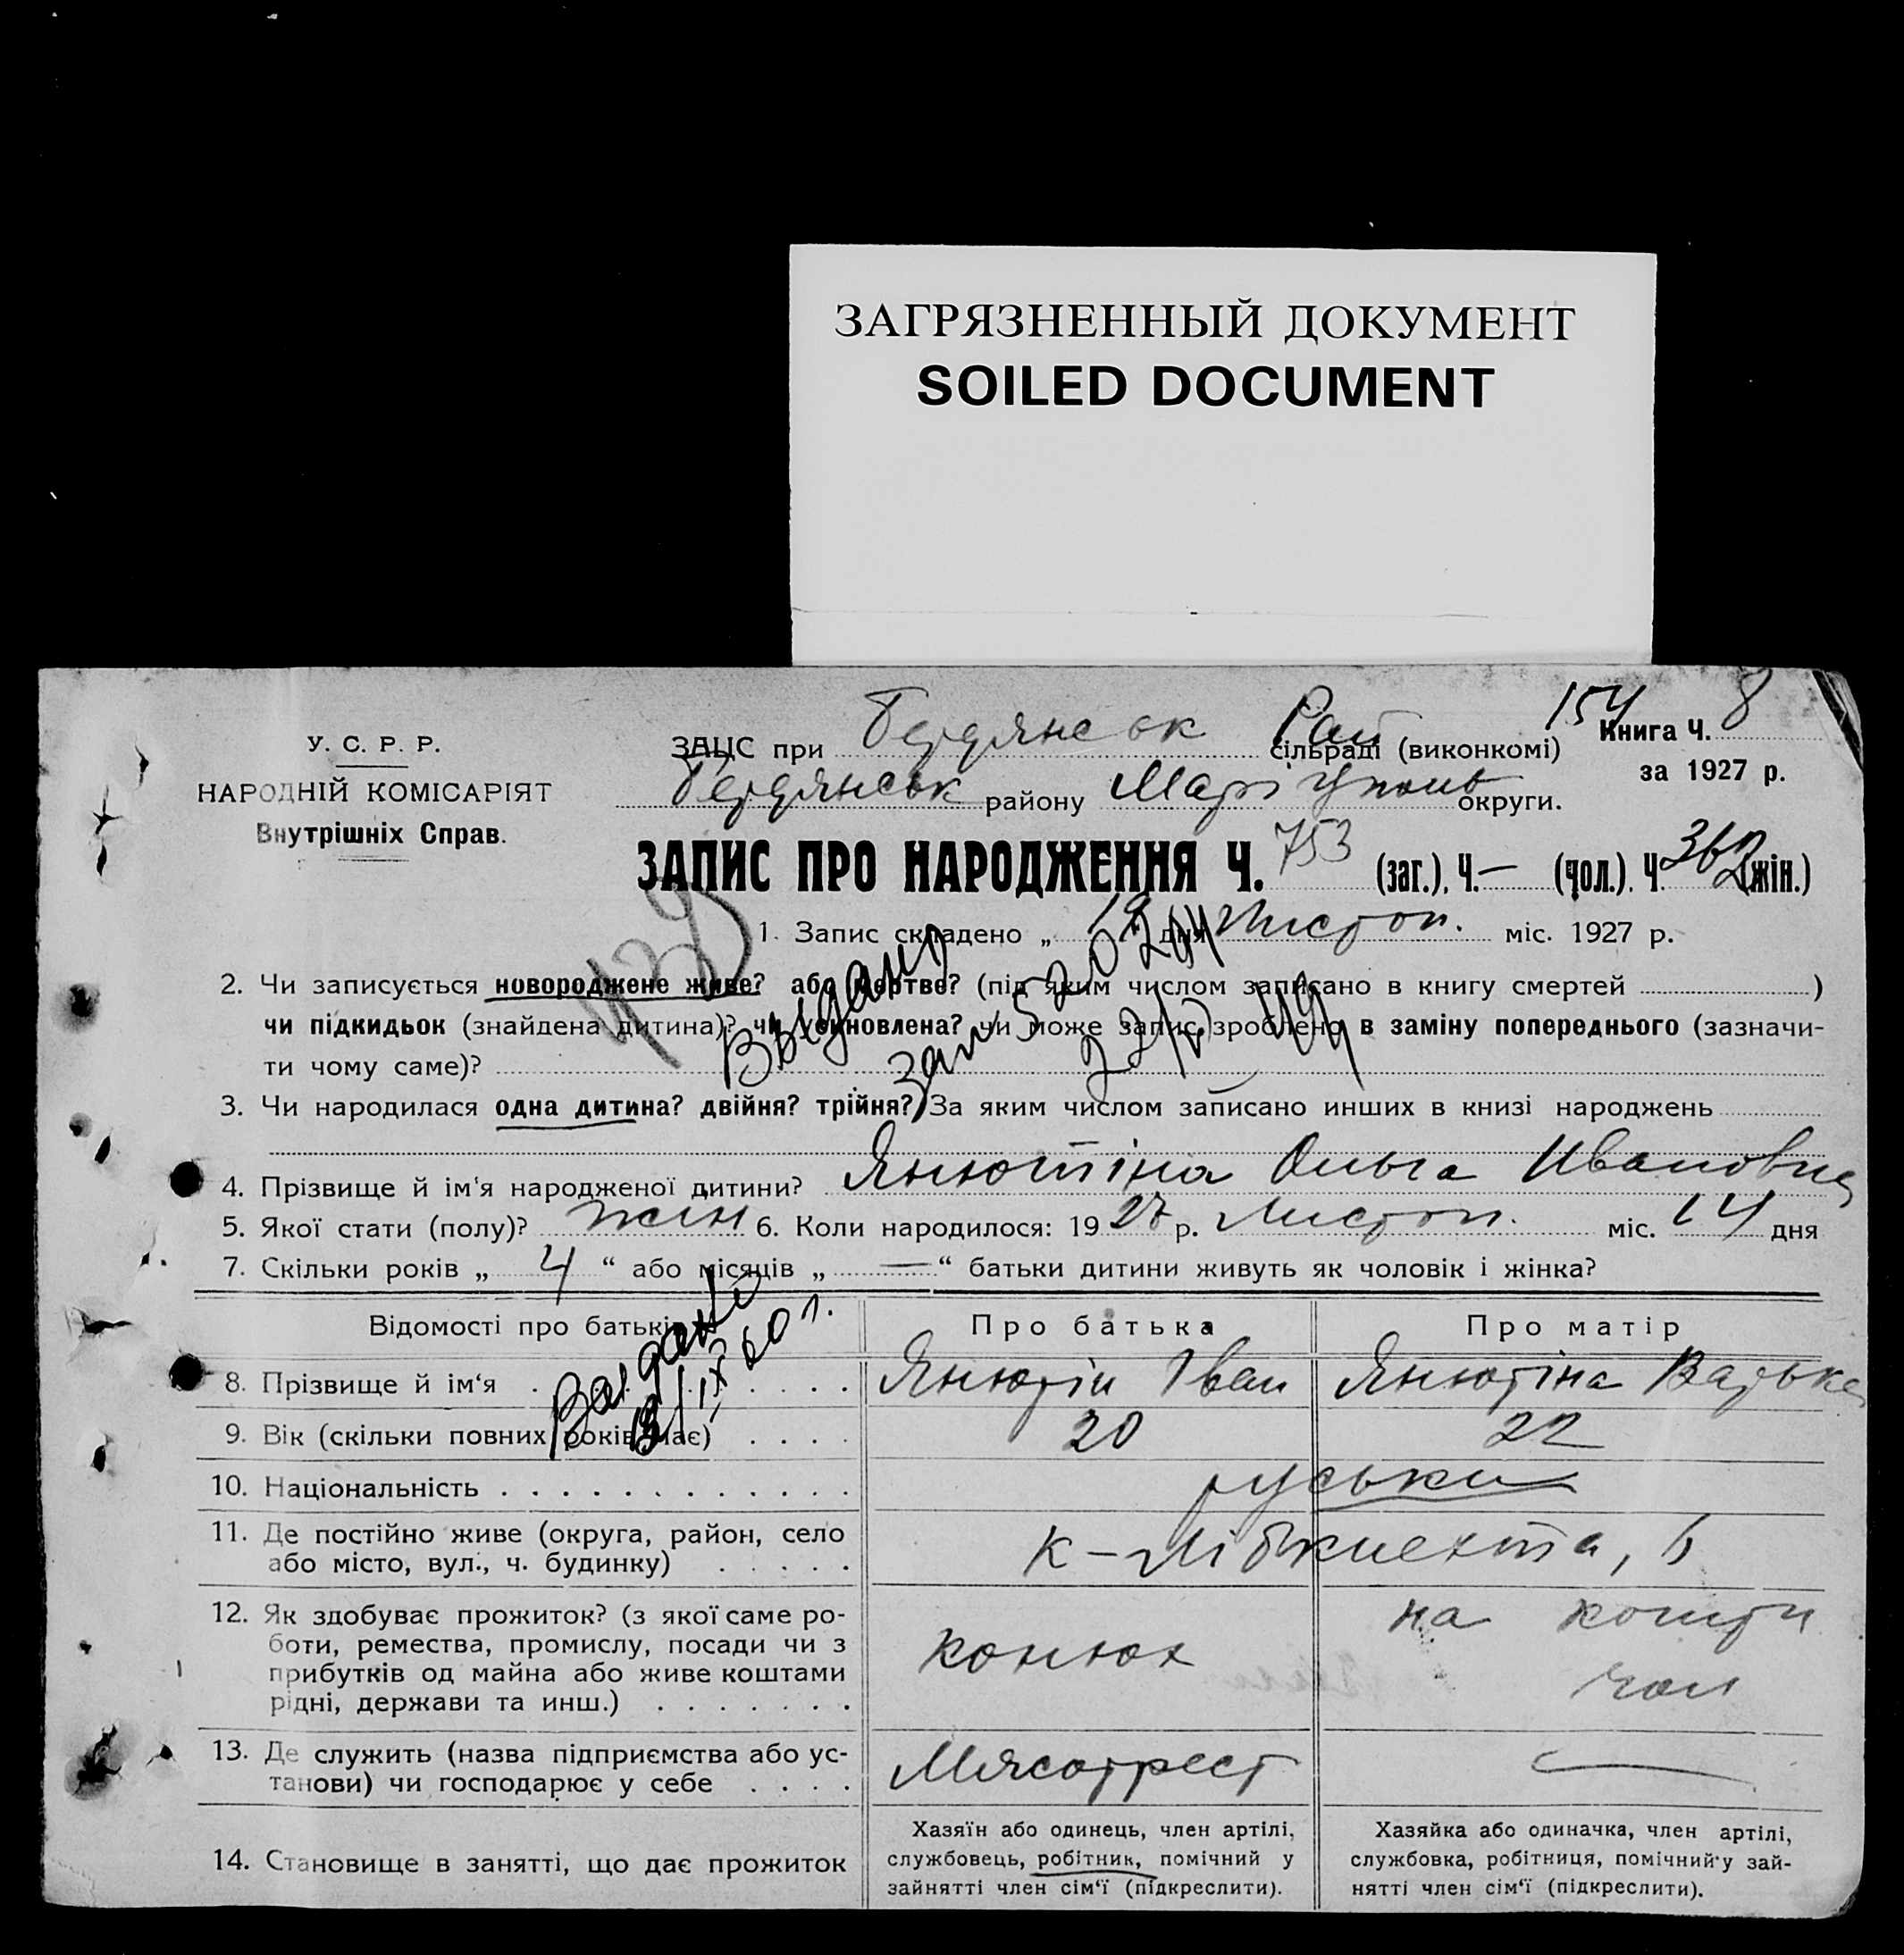 ЗАГРЯЗНЕННЫЙ ДОКУМЕНТ
SOILED DOCUMENT
154
У. С. Р. Р.
НАРОДНІЙ КОМІСАРІЯТ
Внутрішніх Справ.
ЗАЦС при Бердянськ Рай сільраді (виконкомі)
Книга Ч. 8
за 1927 р.
Бердянськ району Маріупольс округи.
ЗАПИС ПРО НАРОДЖЕННЯ Ч. 753 (заг.), Ч. — (чол.). Ч. 362 (жін.)
1. Запис складено „ 19 дня Листоп. міс. 1927 р.
2. Чи записується новороджене живе? або мертве? (під яким числом записано в книгу смертей )
чи підкидьок (знайдена дитина)? чи усиновлена? чи може запис зроблено в заміну попереднього (зазначи-
ти чому саме)?
Выдано
3. Чи народилася одна дитина? двійня? трійня? За яким числом записано инших в книзі народжень
4. Прізвище й ім'я народженої дитини? Янютіна Ольга Ивановна
5. Якої стати (полу)? жін 6. Коли народилося: 1927 р. Листоп. міс. 14 дня
7. Скільки років „ 4 “ або місяців „ — “ батьки дитини живуть як чоловік і жінка?
Відомості про батьків
Про батька
Про матір
Выдано
60 г.
8. Прізвище й ім‘я Янютін Іван Янютіна Варька
9. Вік (скільки повних років має) 20 22
10. Національність руськи
11. Де постійно живе (округа, район, село
або місто, вул., ч. будинку)
К-Лібкнехта, 6
12. Як здобуває прожиток? (з якої саме ро-
боти, ремества, промислу, посади чи з
прибутків од майна або живе коштами
рідні, держави та инш.)
конюх
на кошти
чол
13. Де служить (назва підприємства або ус-
танови) чи господарює у себе
Мясотрест
—
14. Становище в занятті, що дає прожиток
Хазяїн або одинець, член артілі,
службовець, робітник, помічний у
зайнятті член сім‘ї (підкреслити).
Хазяйка або одиначка, член артілі,
службовка, робітниця, помічний у зай-
нятті член сім‘ї (підкреслити).